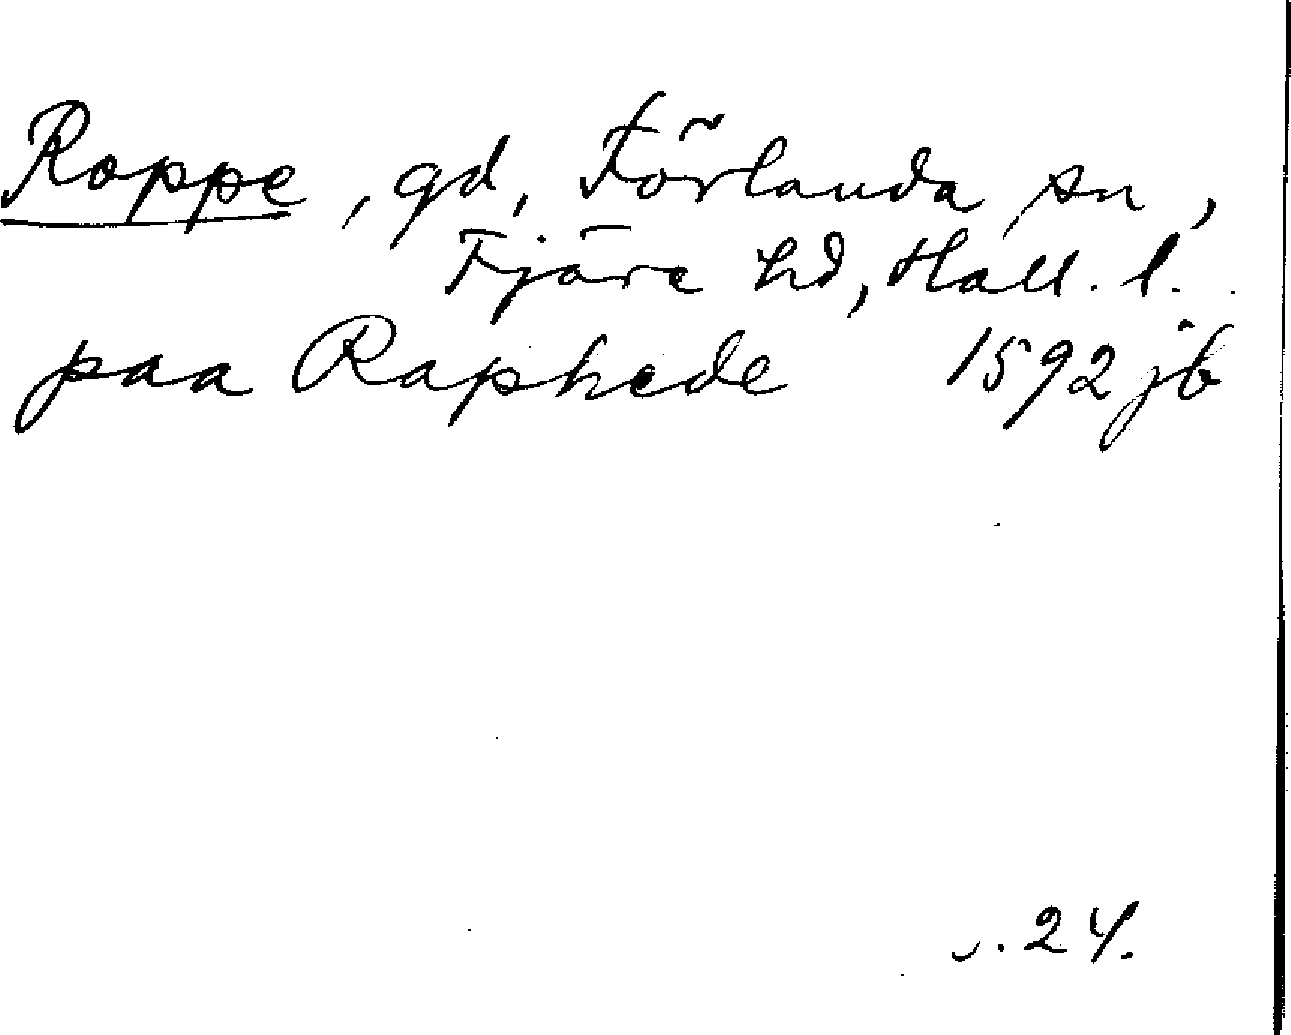 Roppe, gd, Förlanda sn,
Fjäre hd, Hall. l.
paa Raphede 1592 jb
s. 24.